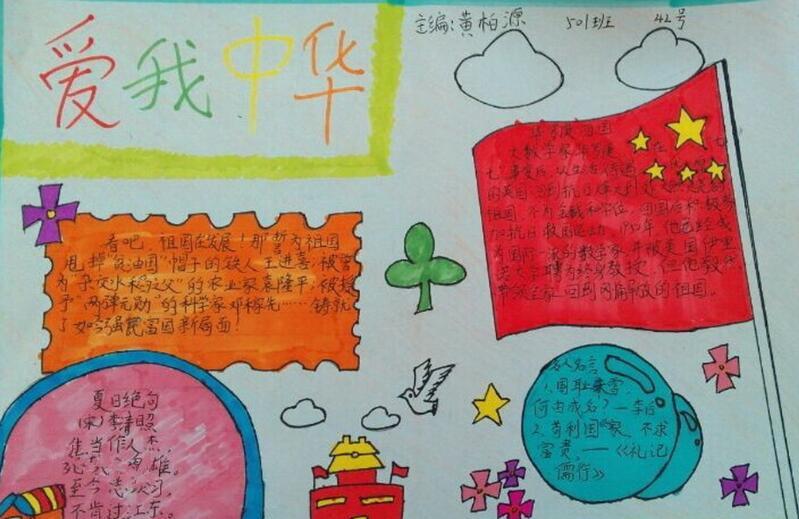 爱我中华
主编:黄柏源 501班 42号
华罗庚回国
大数学家华罗庚在七
七事变后,从生活
的英国,回到抗日
祖国,不为金钱和学位。回国后积极参
加抗日救国运动。1950年,他已经成
为国际一流的数学家,并被美国伊里
诺大学聘为终身教授,但他毅然
带领全家,回到了解放的祖国。
看吧,祖国在发展!那誓为祖国
甩掉“贫油国”帽子的铁人王进喜;被誉
为“杂交水稻之父”的农业家袁隆平;被授
予“两弹元勋”的科学家邓稼先……铸就
了如今强民富国新局面!
夏日绝句
(宋)李清照
作人杰,
死 雄。
至今思
不肯过江东。
名人名言
1.国耻未雪,
何由成名?—李白
2.苟利国家,不求
富贵。——《礼记
儒行》